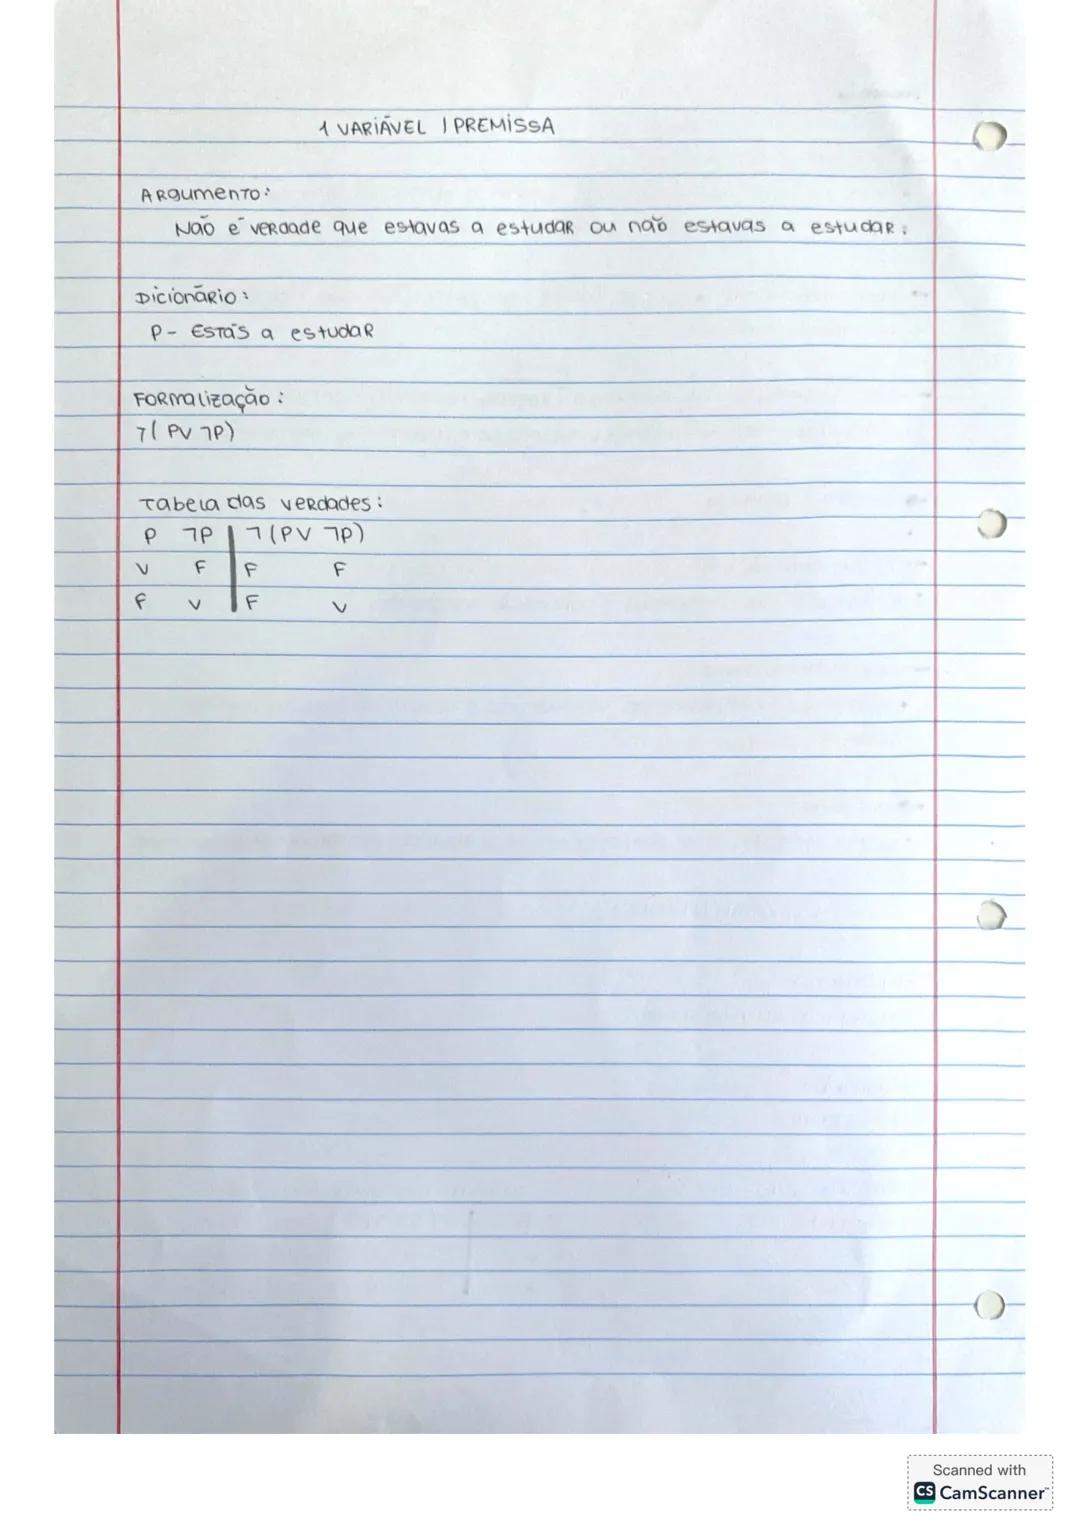 1 VARIÁVEL 1 PREMISSA
Argumento:
Não é verdade que estavas a estudar ou não estavas a estudar.
Dicionário:
P - Estás a estudar
Formalização:
¬( P V ¬P)
Tabela das verdades:
P ¬P | ¬ (P V ¬P)
V F | F F
F V | F V
Scanned with
CS CamScanner